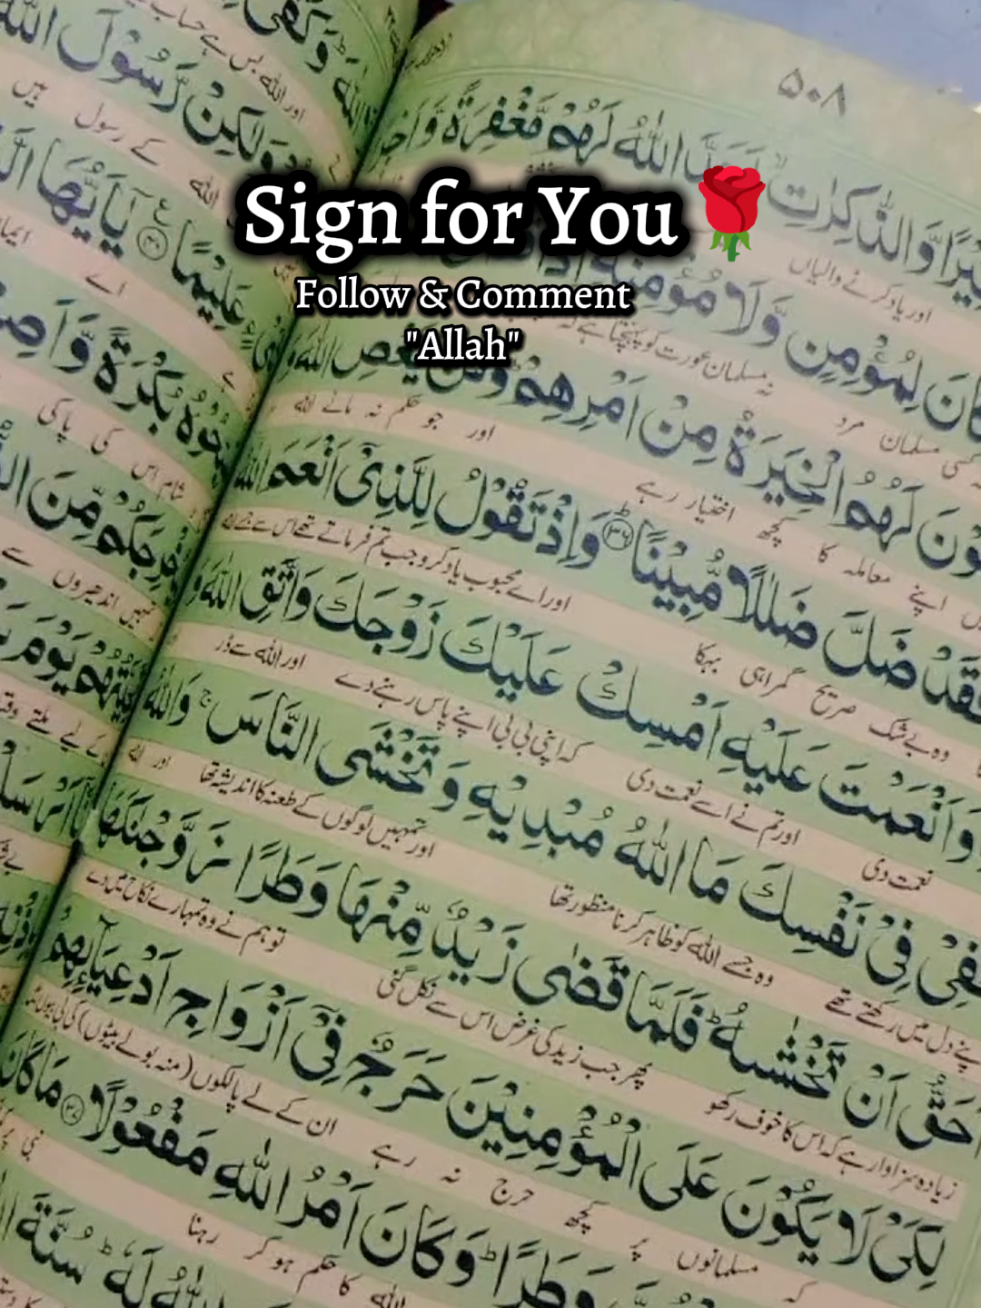 Sign for You🌹
Follow & Comment
"Allah"
۵۰۸
وَّالذّٰكِرٰتِ اَعَدَّ اللّٰهُ لَهُمْ مَّغْفِرَةً وَّاَ
اور یاد کرنے والیاں
كَانَ لِمُؤْمِنٍ وَّلَا مُؤْمِنَةٍ اِذَا
کسی مسلمان مرد نہ مسلمان عورت کو پہنچتا ہے
لَهُمُ الْخِيَرَةُ مِنْ اَمْرِهِمْ وَمَنْ يَّعْصِ اللّٰهَ
اپنے معاملہ کا کچھ اختیار رہے اور جو حکم نہ مانے اللہ
فَقَدْ ضَلَّ ضَلٰلًا مُّبِيْنًا ۳۶ وَاِذْ تَقُوْلُ لِلَّذِيْۤ اَنْعَمَ اللّٰهُ
وہ بے شک صریح گمراہی بہکا اور اے محبوب یاد کرو جب تم فرماتے تھے اس سے جسے
وَاَنْعَمْتَ عَلَيْهِ اَمْسِكْ عَلَيْكَ زَوْجَكَ وَاتَّقِ اللّٰهَ وَ
نعمت دی اور تم نے اسے نعمت دی کہ اپنی بی بی اپنے پاس رہنے دے اور اللہ سے ڈر
فِيْ نَفْسِكَ مَا اللّٰهُ مُبْدِيْهِ وَتَخْشَى النَّاسَ ۚ وَاللّٰهُ
اپنے دل میں رکھتے تھے وہ جسے اللہ کو ظاہر کرنا منظور تھا اور تمہیں لوگوں کے طعنہ کا اندیشہ تھا اور اللہ
اَحَقُّ اَنْ تَخْشٰىهُ ؕ فَلَمَّا قَضٰى زَيْدٌ مِّنْهَا وَطَرًا زَوَّجْنٰكَهَا
زیادہ سزاوار ہے کہ اس کا خوف رکھو پھر جب زید کی غرض اس سے نکل گئی تو ہم نے وہ تمہارے نکاح میں دے
لِكَيْ لَا يَكُوْنَ عَلَى الْمُؤْمِنِيْنَ حَرَجٌ فِيْۤ اَزْوَاجِ اَدْعِيَآئِهِمْ
کہ مسلمانوں پر کچھ حرج نہ رہے ان کے لے پالکوں (منہ بولے بیٹوں) کی
وَطَرًا ؕ وَكَانَ اَمْرُ اللّٰهِ مَفْعُوْلًا ۳۷ مَا كَانَ
کا حکم ہو کر رہنا
لَهٗ ؕ سُنَّةَ
وَكَفٰى
اور اللہ بس ہے
وَلٰكِنْ رَّسُوْلَ اللّٰهِ
اللہ کے رسول ہیں
عَلِيْمًا ۴۰ يٰۤاَيُّهَا
اے
بُكْرَةً وَّاَ
شام اس کی پاکی
مِّنَ
تمہیں اندھیروں سے
يَوْمَ
کے لیے ملتے وقت